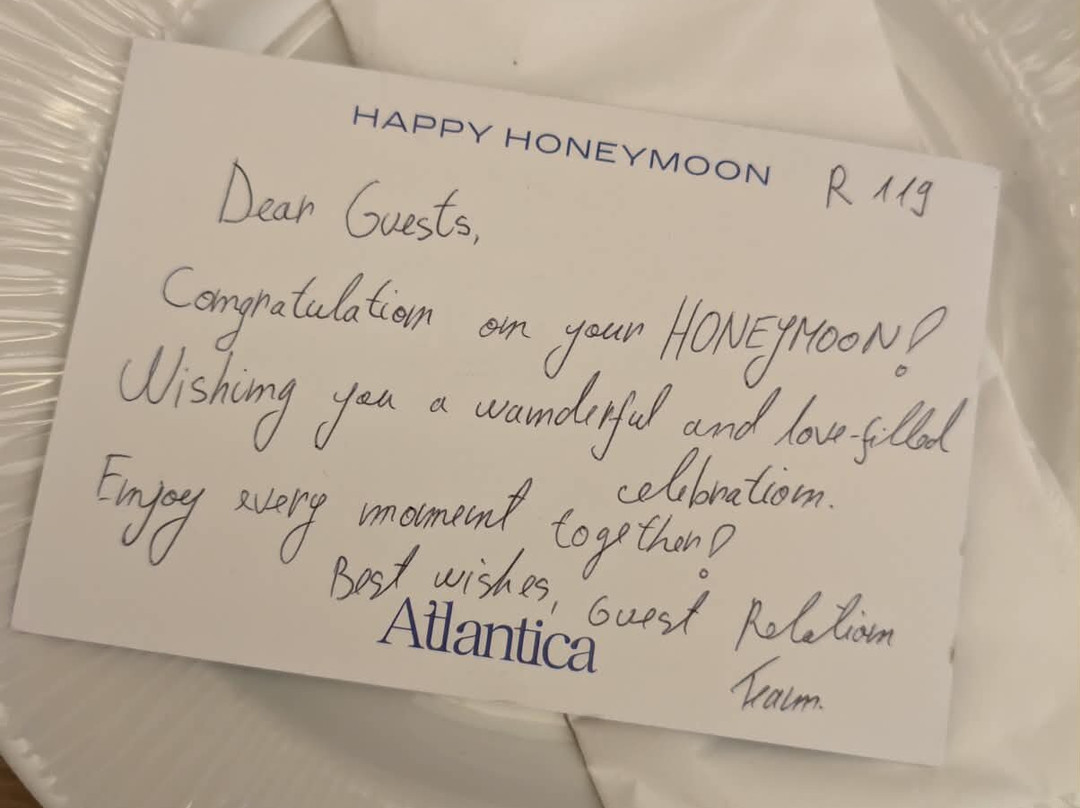 HAPPY HONEYMOON
R 119
Dear Guests,
Congratulation on your HONEYMOON!
Wishing you a wonderful and love-filled
celebration.
Enjoy every moment together!
Best wishes, Guest Relation
Team.
Atlantica